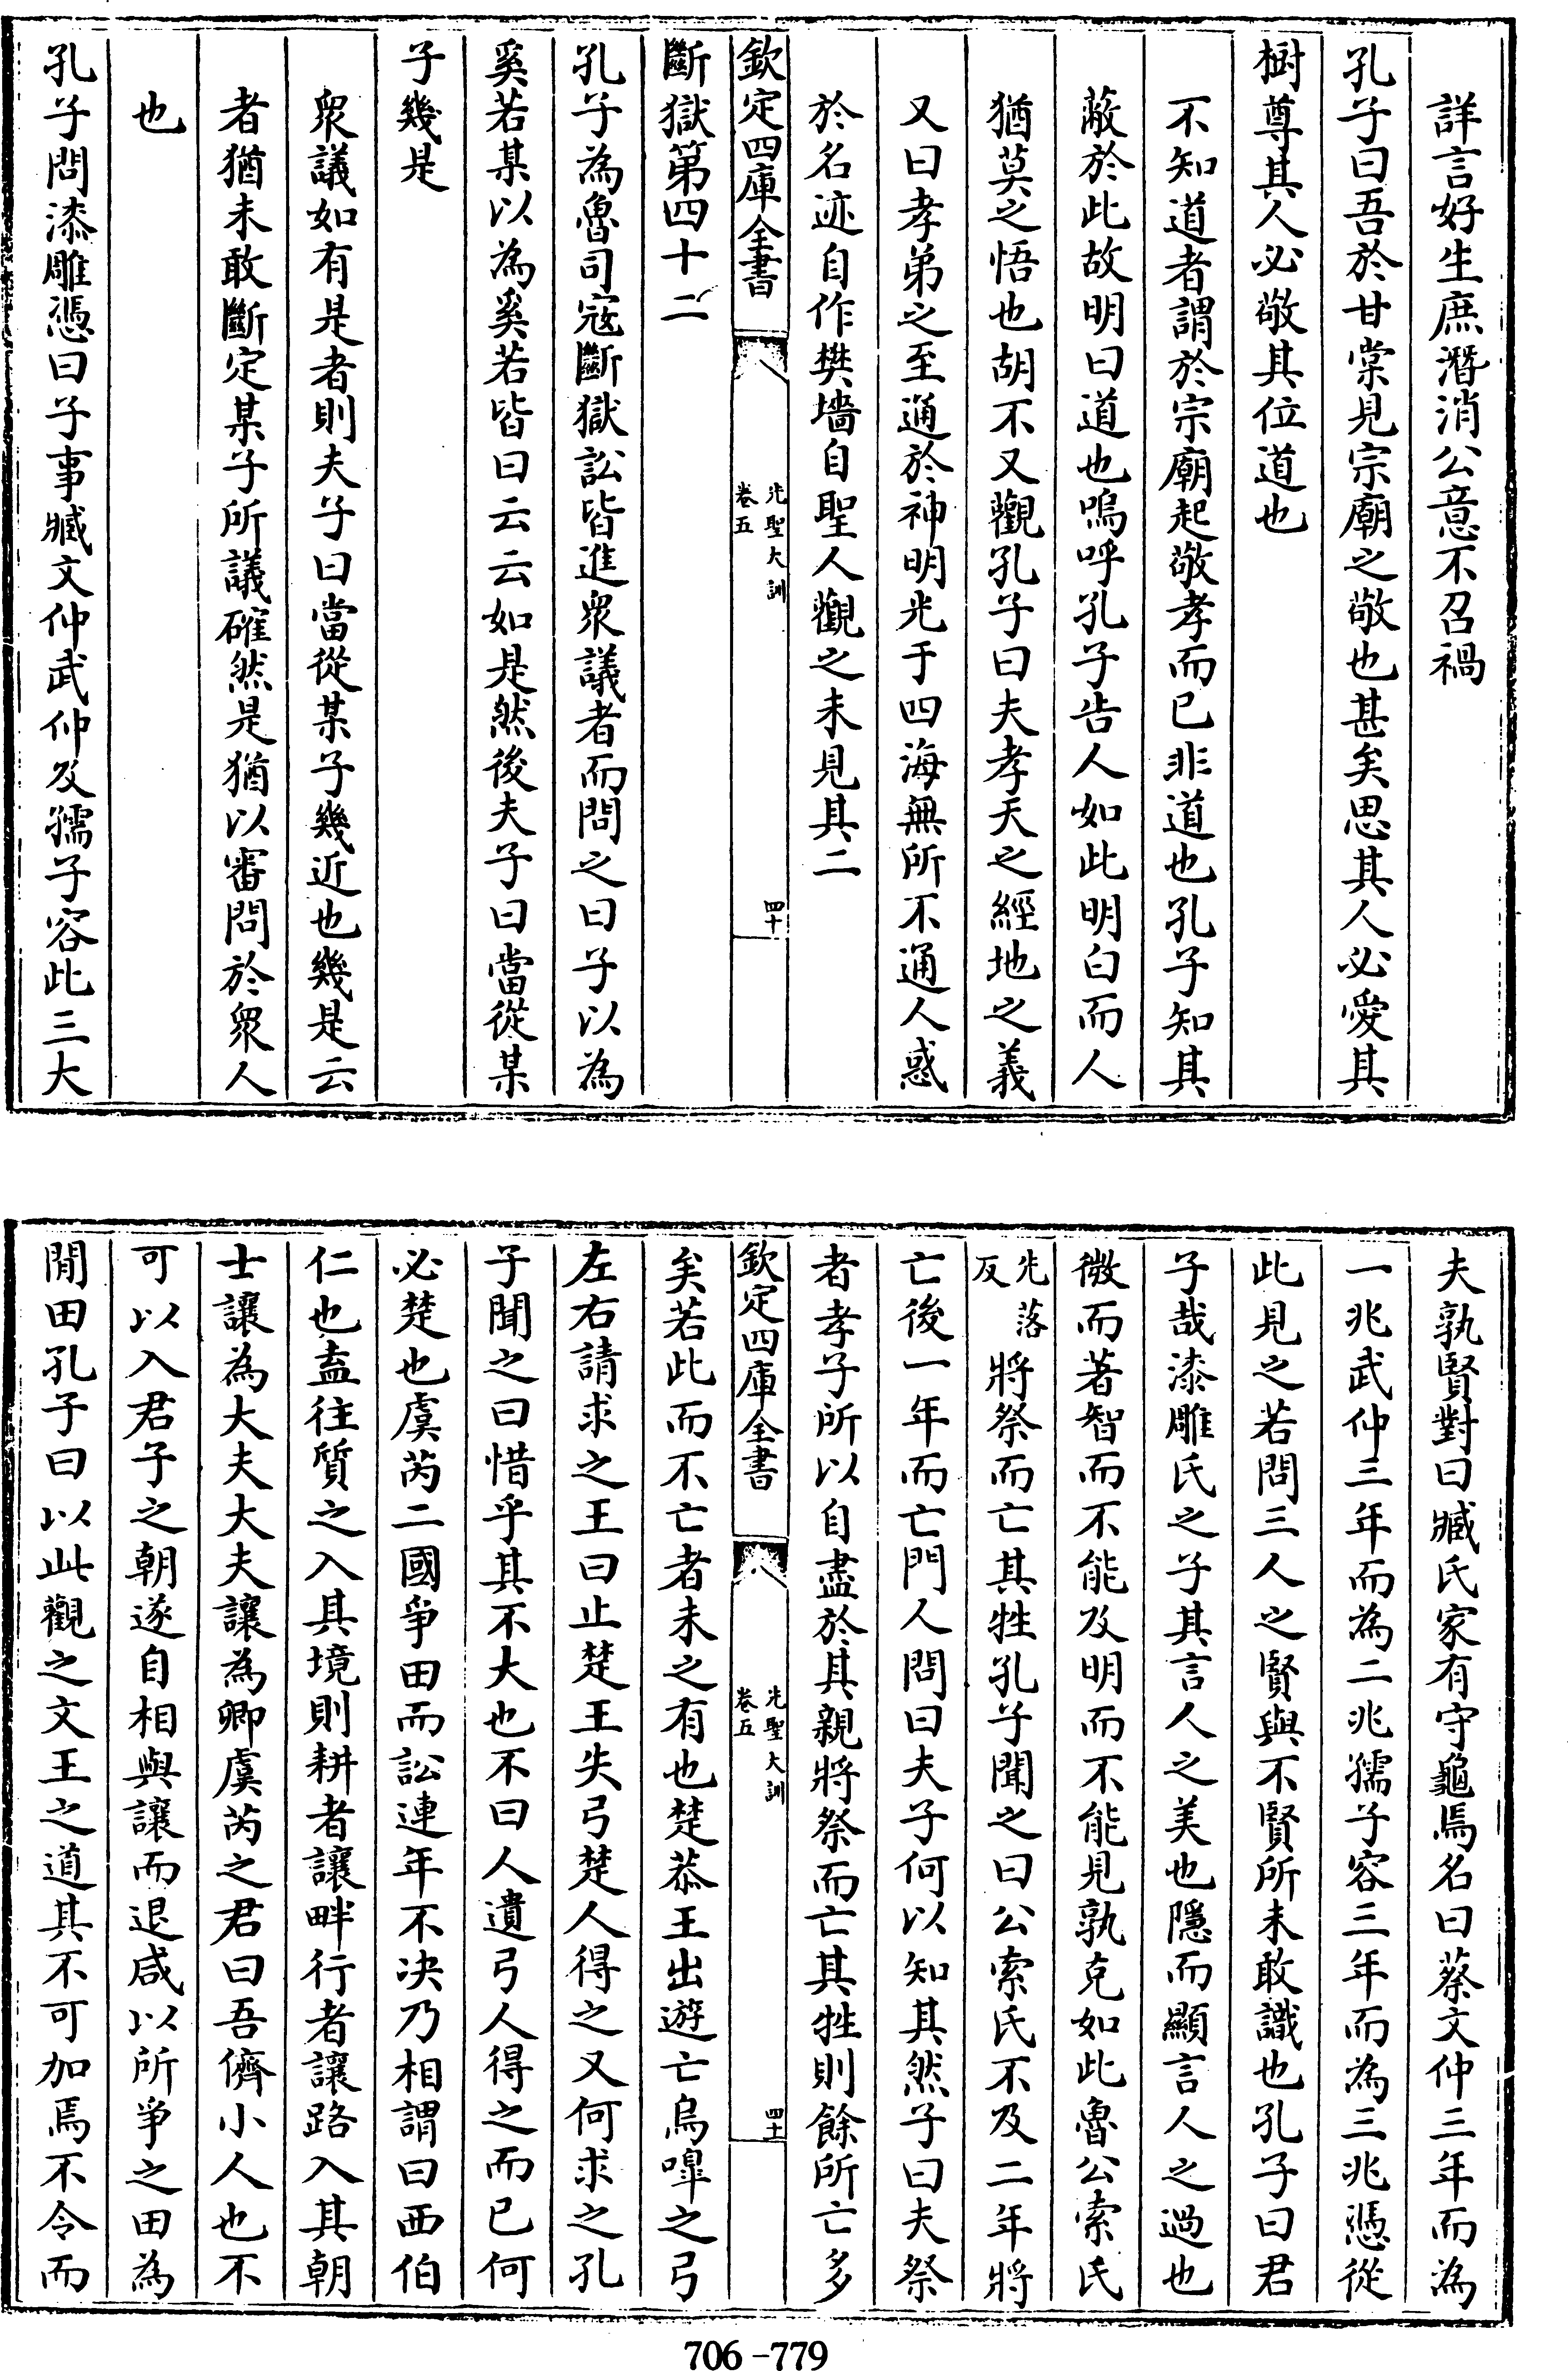 詳言好生庶潛消公意不召禍
孔子曰吾於甘棠見宗廟之敬也甚矣思其人必愛其
樹尊其人必敬其位道也
不知道者謂於宗廟起敬孝而已非道也孔子知其
蔽於此故明曰道也嗚呼孔子告人如此明白而人
猶莫之悟也胡不又觀孔子曰夫孝天之經地之義
又曰孝弟之至通於神明光于四海無所不通人惑
於名迹自作樊墻自聖人觀之未見其二
欽定四庫全書
先聖大訓
卷五
四十
斷獄第四十二
孔子為魯司寇斷獄訟皆進衆議者而問之曰子以為
奚若某以為奚若皆曰云云如是然後夫子曰當從某
子幾是
衆議如有是者則夫子曰當從某子幾近也幾是云
者猶未敢斷定某子所議確然是猶以審問於衆人
也
孔子問漆雕憑曰子事臧文仲武仲及孺子容此三大
夫孰賢對曰臧氏家有守龜焉名曰蔡文仲三年而為
一兆武仲三年而為二兆孺子容三年而為三兆憑從
此見之若問三人之賢與不賢所未敢識也孔子曰君
子哉漆雕氏之子其言人之美也隱而顯言人之過也
微而著智而不能及明而不能見孰克如此魯公索氏
先落
反
將祭而亡其牲孔子聞之曰公索氏不及二年將
亡後一年而亡門人問曰夫子何以知其然子曰夫祭
者孝子所以自盡於其親將祭而亡其牲則餘所亡多
欽定四庫全書
先聖大訓
卷五
四十一
矣若此而不亡者未之有也楚恭王出遊亡烏嘷之弓
左右請求之王曰止楚王失弓楚人得之又何求之孔
子聞之曰惜乎其不大也不曰人遺弓人得之而已何
必楚也虞芮二國爭田而訟連年不決乃相謂曰西伯
仁也盍往質之入其境則耕者讓畔行者讓路入其朝
士讓為大夫大夫讓為卿虞芮之君曰吾儕小人也不
可以入君子之朝遂自相與讓而退咸以所爭之田為
閒田孔子曰以此觀之文王之道其不可加焉不令而
706-779